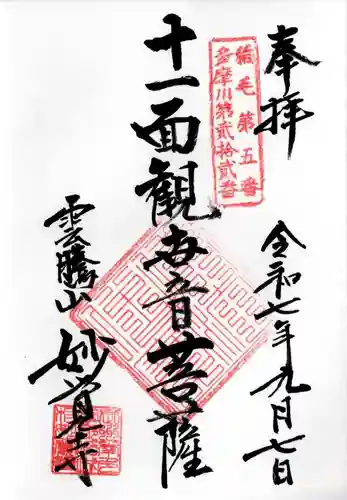 奉拝
令和七年九月七日
稲毛第五番
多摩川第貳拾貳番
十一面観世音菩薩
雲騰山
妙覚寺